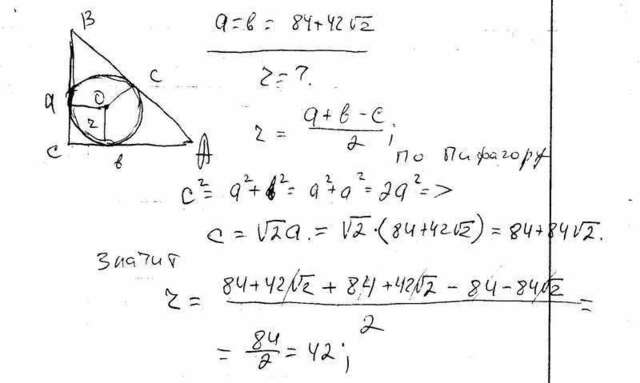 B
a
O
c
r
C
b
A
a = b = 84+42√2
r = ?
r = (a + b - c)/2;
по Пифагору
c² = a² + b² = a² + a² = 2a² =>
c = √2a. = √2·(84+42√2) = 84+84√2.
Значит
r = (84+42√2 + 84+42√2 - 84-84√2)/2 =
= 84/2 = 42;